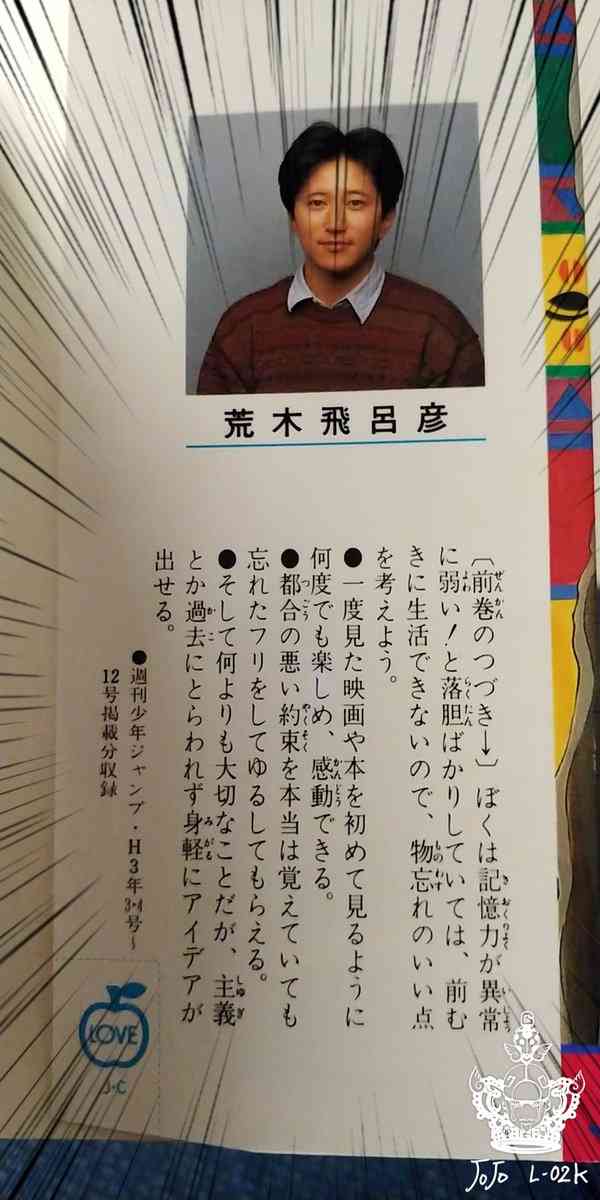 荒木飛呂彦
〔前巻のつづき→〕 ぼくは記憶力が異常
に弱い！と落胆ばかりしていては、前む
きに生活できないので、物忘れのいい点
を考えよう。
●一度見た映画や本を初めて見るように
何度でも楽しめ、感動できる。
●都合の悪い約束を本当は覚えていても
忘れたフリをしてゆるしてもらえる。
●そして何よりも大切なことだが、主義
とか過去にとらわれず身軽にアイデアが
出せる。
●週刊少年ジャンプ・H3年3・4号〜
12号掲載分収録
LOVE
J・C
JoJo L-02K